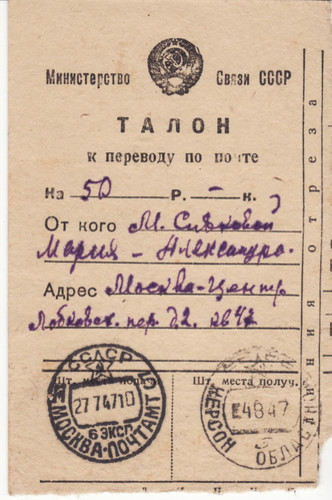 Министерство Связи СССР
ТАЛОН
к переводу по почте
На 50 Р. – к.
От кого М. Сивковой
Мария – Александро.
Адрес Москва-Центр
Лобковск. пер. д. 2. кв 47
Шт. места подачи
Шт. места получ.
СССР
27 7 47 10
6 ЭКСП.
МОСКВА-ПОЧТАМТ
ХЕРСОН
4 8 47
ОБЛАСТН
линия отреза